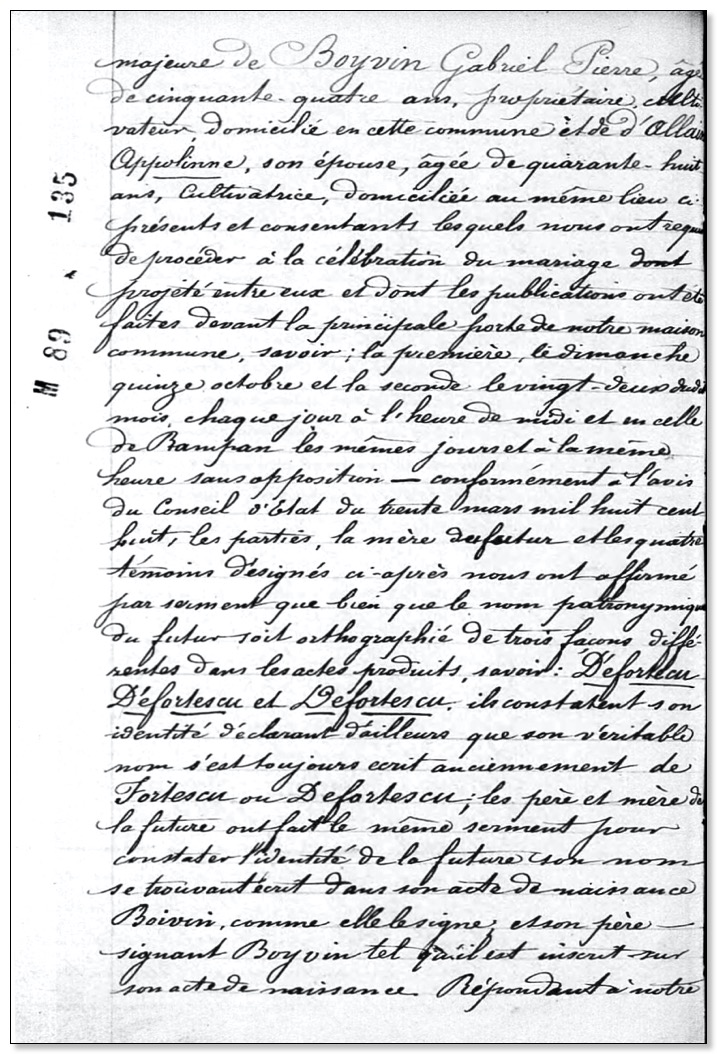 majeure de Boyvin Gabriel Pierre, âgé
de cinquante-quatre ans, propriétaire, culti-
vateur, domicilié en cette commune et de d'Allain
Appolinne, son épouse, âgée de quarante-huit
ans, Cultivatrice, domiciliée au même lieu ci-
présents et consentants lesquels nous ont requis
de procéder à la célébration du mariage dont
projeté entre eux et dont les publications ont été
faites devant la principale porte de notre maison
commune, savoir; la première, le dimanche
quinze octobre et la seconde le vingt-deux dudit
mois, chaque jour à l'heure de midi et en celle
de Rampan les mêmes jours et à la même
heure sans opposition — conformément à l'avis
du Conseil d'Etat du trente mars mil huit cent
huit, les parties, la mère du futur et les quatre
témoins désignés ci-après nous ont affirmé
par serment que bien que le nom patronymique
du futur soit orthographié de trois façons diffé-
rentes dans les actes produits, savoir: Défortecu
Défortescu et Defortescu, ils constatent son
identité déclarant d'ailleurs que son véritable
nom s'est toujours ecrit anciennement de
Fortescu ou Defortescu; les père et mère de
la future ont fait le même serment pour
constater l'identité de la future son nom
se trouvant écrit dans son acte de naissance
Boivin, comme elle le signe, et son père —
signant Boyvin tel qu'il est inscrit sur
son acte de naissance. Répondant à notre
M 89 135